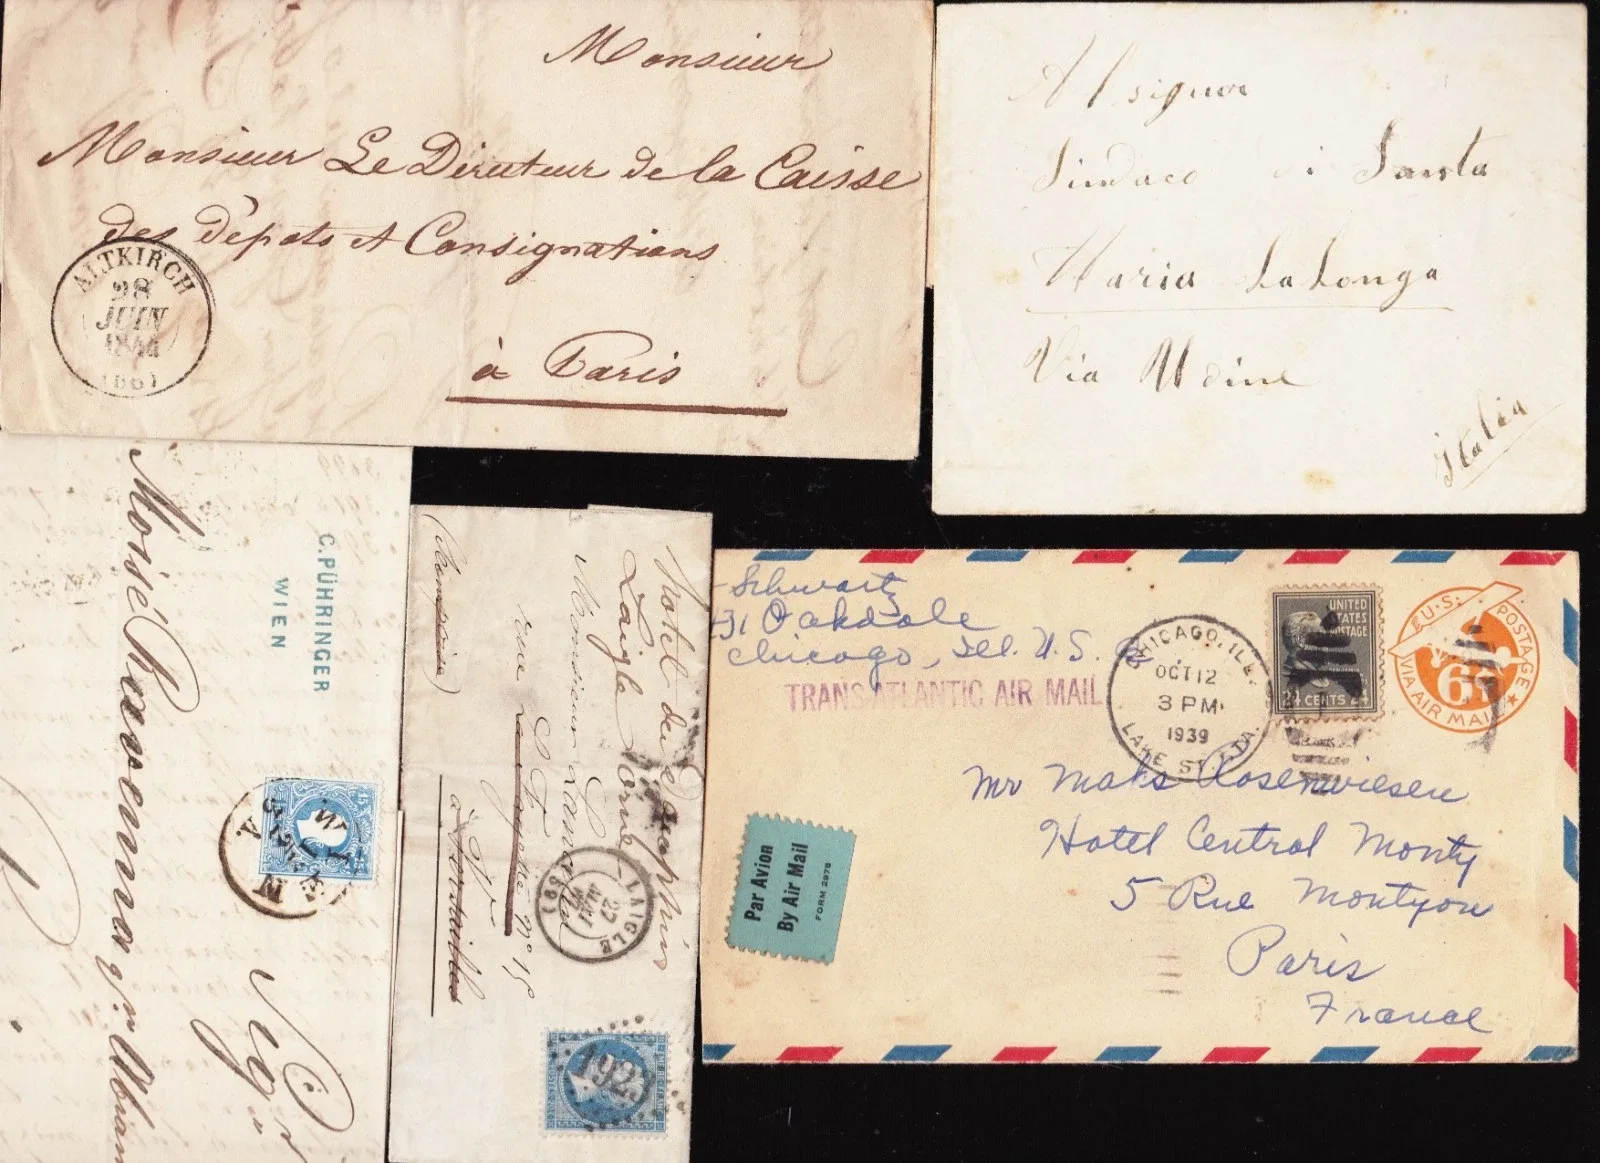 Monsieur
Monsieur Le Directeur de la Caisse
des Dépots et Consignations
à Paris
ALTKIRCH
28
JUIN
(66)
Al signor
Sindaco di Santa
Maria La Longa
Via Udine
Italia
C. PÜHRINGER
WIEN
Moisé
WIEN
15
(Transparisien)
Hotel du Dauphin
Laigle Orne
Monsieur
rue La Fayette no 15
à Versailles
LAIGLE
27
(59)
1923
Schwartz
Oakdale
Chicago, Ill. U.S.
TRANS-ATLANTIC AIR MAIL
CHICAGO, ILL.
OCT 12
3 PM
1939
LAKE ST. STA.
UNITED
STATES
POSTAGE
24 CENTS 24
U.S. POSTAGE
6¢
VIA AIR MAIL
Mr Maks Rosenwiesen
Hotel Central Monty
5 Rue Montyon
Paris
France
Par Avion
By Air Mail
FORM 2978